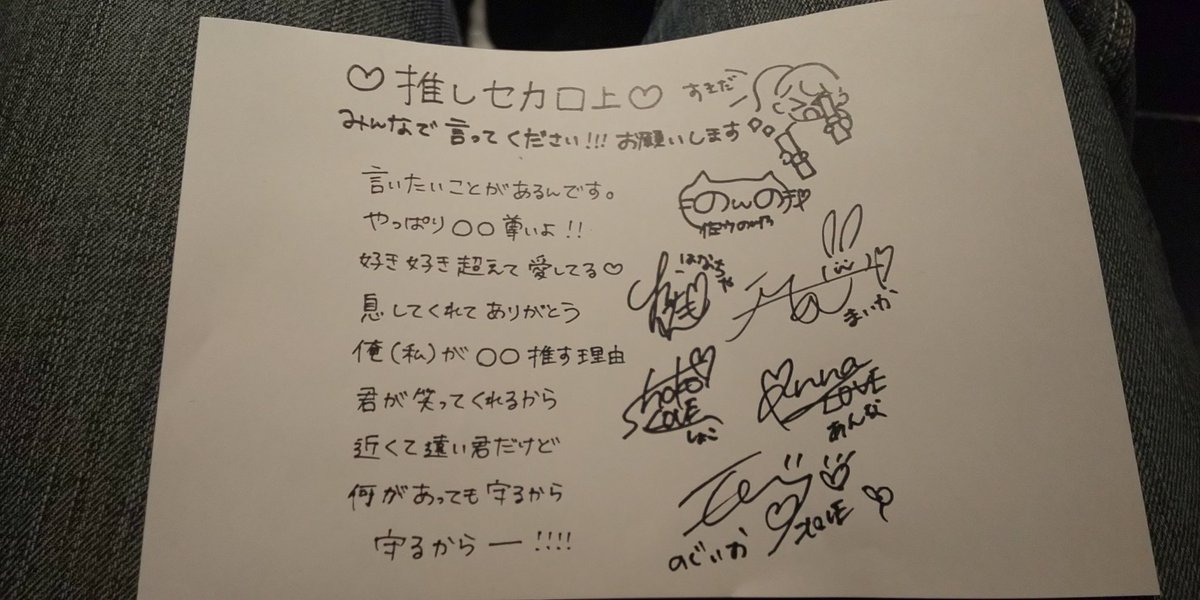 ♡推しセカロ上♡
みんなで言ってください!!!お願いします
言いたいことがあるんです。
やっぱり〇〇尊いよ!!
好き好き超えて愛してる♡
息してくれてありがとう
俺(私)が〇〇推す理由
君が笑ってくれるから
近くて遠い君だけど
何があっても守るから
守るからー!!!!
のんの
はなちゃ
まいか
Shoko
LOVE
しょこ
Anna
LOVE
あんな
のじいか